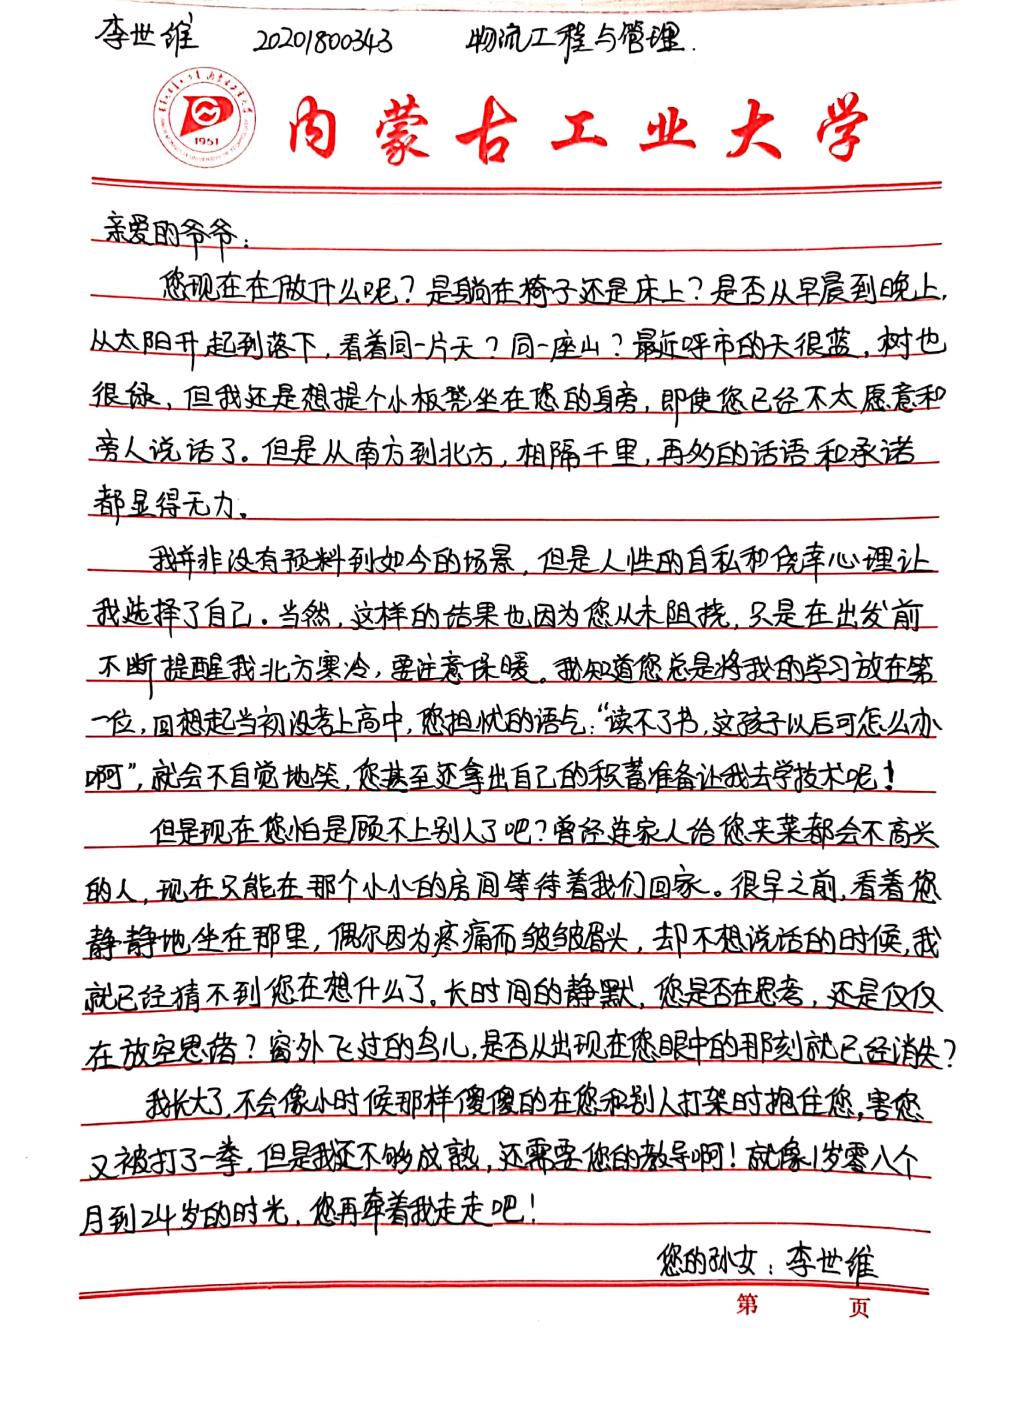 李世维 20201800343 物流工程与管理.
1951
内蒙古工业大学
亲爱的爷爷:
您现在在做什么呢?是躺在椅子还是床上?是否从早晨到晚上,
从太阳升起到落下,看着同一片天?同一座山?最近呼市的天很蓝,树也
很绿,但我还是想提个小板凳坐在您的身旁,即使您已经不太愿意和
旁人说话了。但是从南方到北方,相隔千里,再多的话语和承诺
都显得无力。
我并非没有预料到如今的场景,但是人性的自私和侥幸心理让
我选择了自己。当然,这样的结果也因为您从未阻挠,只是在出发前
不断提醒我北方寒冷,要注意保暖。我知道您总是将我的学习放在第
一位,回想起当初没考上高中,您担忧的语气:“读不了书,这孩子以后可怎么办
啊”,就会不自觉地笑,您甚至还拿出自己的积蓄准备让我去学技术呢!
但是现在您怕是顾不上别人了吧?曾经连家人给您夹菜都会不高兴
的人,现在只能在那个小小的房间等待着我们回家。很早之前,看着您
静静地坐在那里,偶尔因为疼痛而皱皱眉头,却不想说话的时候,我
就已经猜不到您在想什么了。长时间的静默,您是否在思考,还是仅仅
在放空思绪?窗外飞过的鸟儿,是否从出现在您眼中的那刻就已经消失?
我长大了,不会像小时候那样傻傻的在您和别人打架时抱住您,害您
又被打了一拳,但是我还不够成熟,还需要您的教导啊!就像1岁零八个
月到24岁的时光,您再牵着我走走吧!
您的孙女:李世维
第 页